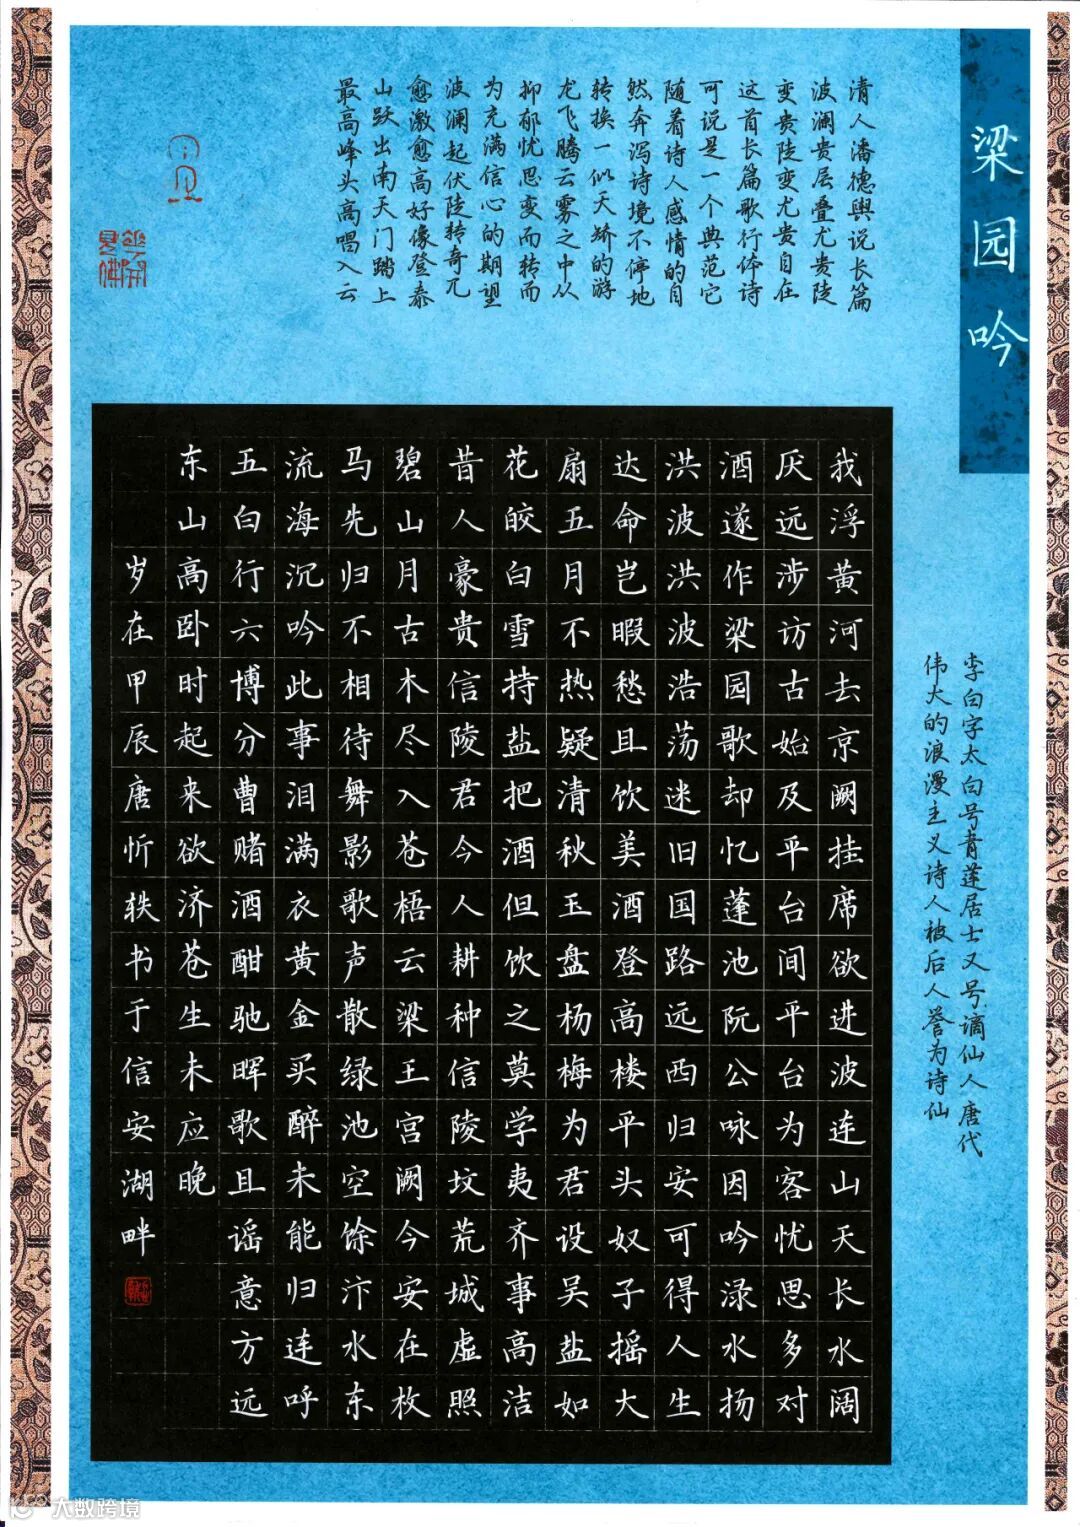 梁园吟
清人潘德舆说长篇
波澜贵层叠尤贵陡
变贵陡变尤贵自在
这首长篇歌行体诗
可说是一个典范它
随着诗人感情的自
然奔泻诗境不停地
转换一似天矫的游
龙飞腾云雾之中从
抑郁忧思变而转而
为充满信心的期望
波澜起伏陡转奇兀
愈激愈高好像登泰
山跃出南天门踏上
最高峰头高唱入云
李白字太白号青莲居士又号谪仙人唐代
伟大的浪漫主义诗人被后人誉为诗仙
我浮黄河去京阙挂席欲进波连山天长水阔
厌远涉访古始及平台间平台为客忧思多对
酒遂作梁园歌却忆蓬池阮公咏因吟渌水扬
洪波洪波浩荡迷旧国路远西归安可得人生
达命岂暇愁且饮美酒登高楼平头奴子摇大
扇五月不热疑清秋玉盘杨梅为君设吴盐如
花皎白雪持盐把酒但饮之莫学夷齐事高洁
昔人豪贵信陵君今人耕种信陵坟荒城虚照
碧山月古木尽入苍梧云梁王宫阙今安在枚
马先归不相待舞影歌声散绿池空馀汴水东
流海沉吟此事泪满衣黄金买醉未能归连呼
五白行六博分曹赌酒酣驰晖歌且谣意方远
东山高卧时起来欲济苍生未应晚
岁在甲辰唐忻轶书于信安湖畔
大数跨境